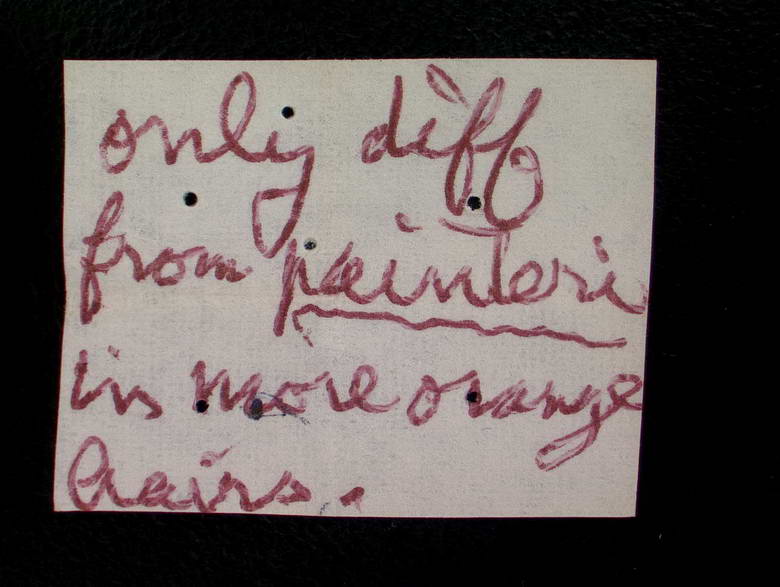 only diff
from painteri
in more orange
hairs.